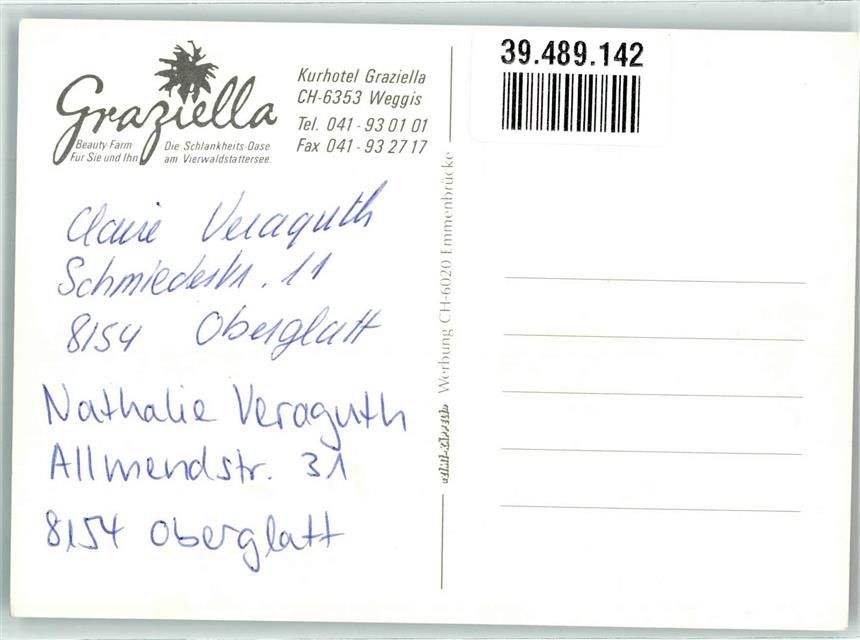 Graziella
Beauty-Farm
Für Sie und Ihn
Die Schlankheits-Oase
am Vierwaldstättersee.
Kurhotel Graziella
CH-6353 Weggis
Tel. 041 - 93 01 01
Fax 041 - 93 27 17
39.489.142
Claire Veraguth
Schmiedestr. 11
8154 Oberglatt
Nathalie Veraguth
Allmendstr. 31
8154 Oberglatt
Werbung CH-6020 Emmenbrücke